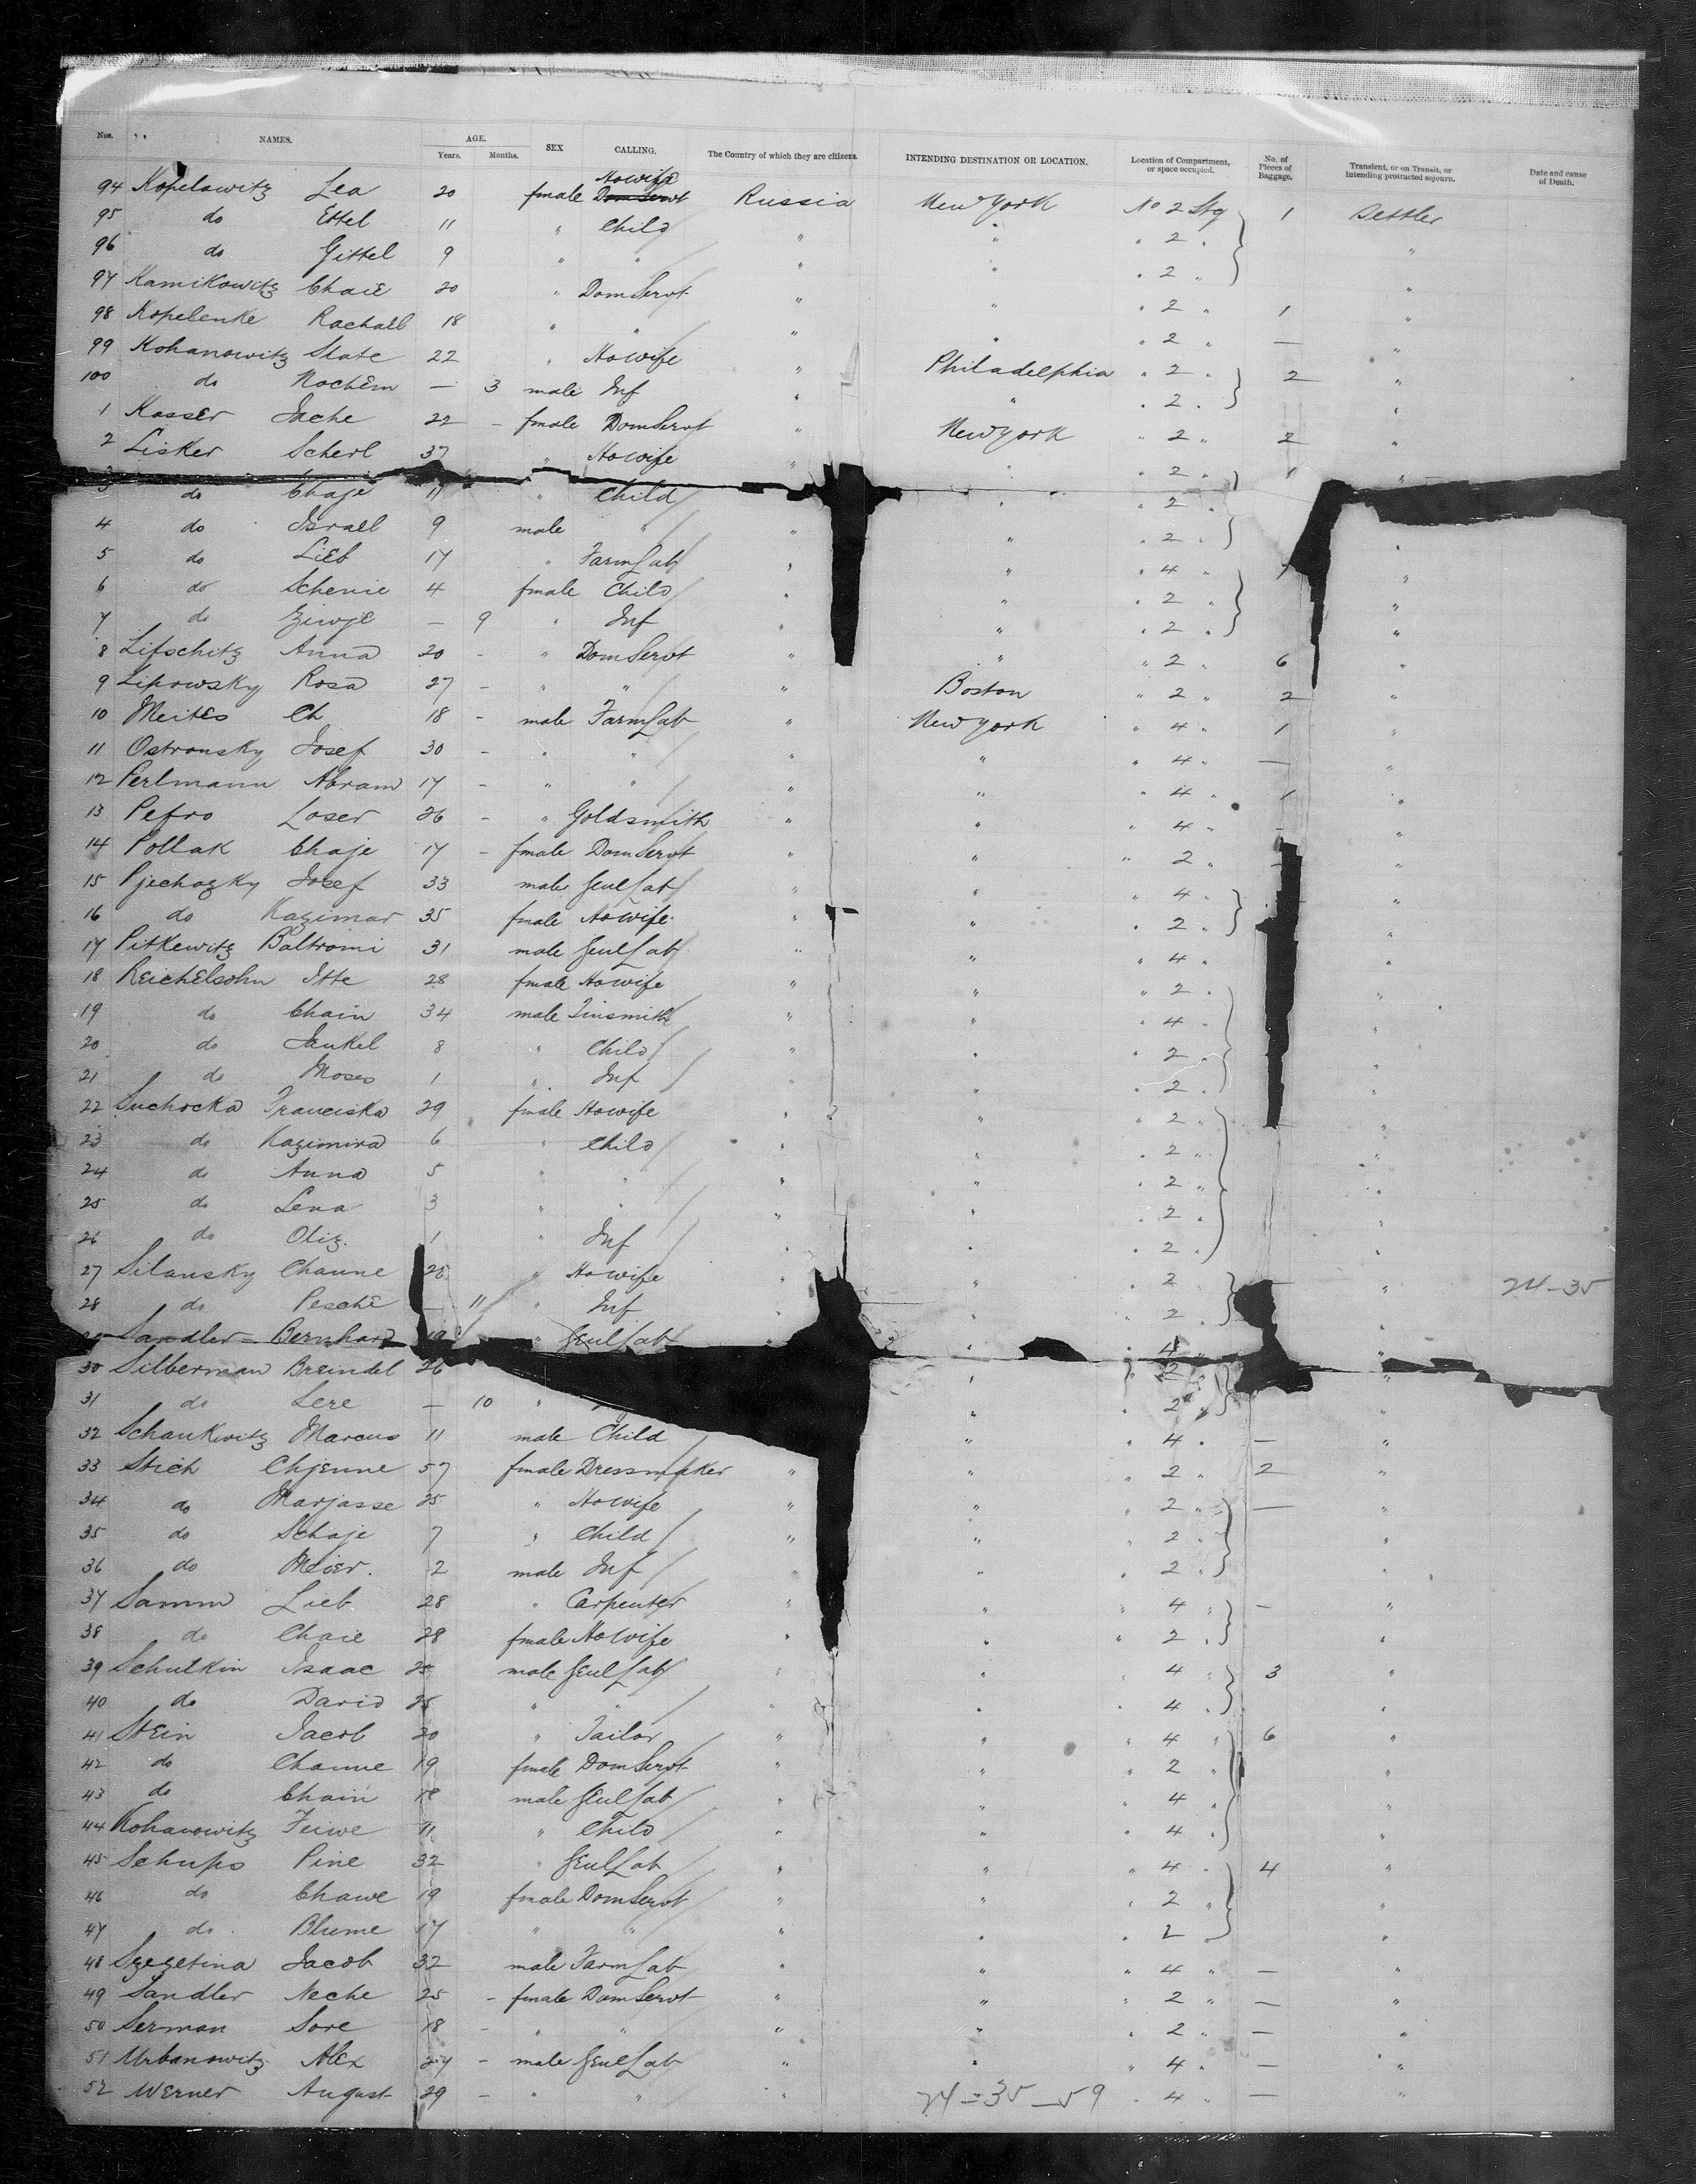 Nos. NAMES. AGE. Years. Months. SEX CALLING. The Country of which they are citizens. INTENDING DESTINATION OR LOCATION. Location of Compartment, or space occupied. No. of Pieces of Baggage. Transient, or on Transit, or intending protracted sojourn. Date and cause of Death.
94 Kopelowitz Lea 20 fmale Dom Servt Howife Russia New York No 2 Stg 1 Settler
95 do Ettel 11 " Child " " " 2 " "
96 do Gittel 9 " " " " " 2 " "
97 Kamikowitz Chaie 20 " Dom Servt " " " 2 " 1 "
98 Kopelenke Rachael 18 " " " " " 2 " — "
99 Kohanowitz Slate 22 " Howife " Philadelphia " 2 " 2 "
100 do Nochem — 3 male Inf " " " 2 " "
1 Kasser Jache 22 - fmale Dom Servt " New York " 2 " 2 "
2 Lisker Scherl 37 " Howife " " " 2 " 1 "
3 do Chaje 11 " Child " " 2 "
4 do Israel 9 male " " " " 2 " "
5 do Lieb 17 " Farm Lab " " " 4 " "
6 do Schenie 4 fmale Child " " " 2 " "
7 do Ziwje — 9 " Inf " " " 2 " "
8 Lifschitz Anna 20 - " Dom Servt " " " 2 " 6 "
9 Lipowsky Rosa 27 - " " " Boston " 2 " 2 "
10 Meites Ch 18 - male Farm Lab " New York " 4 " 1 "
11 Ostronsky Josef 30 - " " " " " 4 " — "
12 Perlmann Abram 17 - " " " " " 4 " 1 "
13 Pefro Loser 26 - " Goldsmith " " " 4 " - "
14 Pollak Chaje 17 - fmale Dom Servt " " " 2 " "
15 Pjechozky Josef 33 male Genl Lab " " " 4 " "
16 do Kazimar 35 fmale Howife " " " 2 " "
17 Pitkewitz Baltromi 31 male Genl Lab " " " 4 " "
18 Reichelsohn Itte 28 fmale Howife " " " 2 " "
19 do Chain 34 male Tinsmith " " " 4 " "
20 do Jankel 8 " Child " " " 2 " "
21 do Moses 1 " Inf " " " 2 " "
22 Suchocka Franciska 29 fmale Howife " " " 2 " "
23 do Kazimira 6 " Child " " " 2 " "
24 do Anna 5 " " " " " 2 " "
25 do Lena 3 " " " " " 2 " "
26 do Oliz. 1 " Inf " " " 2 " "
27 Silansky Channe 26 " Howife " " " 2 " 24-35
28 do Pesche — 11 " Inf " " " 2 " "
Sandler Bernhard 19 " Genl Lab " " " 4 " "
30 Silberman Breindel 26 " " 2 " "
31 do Lere — 10 " " " 2 " "
32 Schankwitz Marcus 11 male Child " " 4 " — "
33 Stich Chjenne 57 fmale Dressmaker " " " 2 " 2 "
34 do Marjasse 25 " Howife " " " 2 " — "
35 do Schaje 7 " Child " " " 2 " "
36 do Meier. 2 male Inf " " " 2 " "
37 Samm Lieb 28 " Carpenter " " " 4 " — "
38 do Chaie 28 fmale Howife " " " 2 " "
39 Schutkin Isaac 25 male Genl Lab " " " 4 " 3 "
40 do David 25 " " " " " 4 " "
41 Stein Jacob 20 " Tailor " " " 4 " 6 "
42 do Channe 19 fmale Dom Servt " " " 2 " "
43 do Chain 18 male Genl Lab " " " 4 " "
44 Kohanowitz Feiwe 11 " Child " " " 4 " "
45 Schups Pine 32 " Genl Lab " " " 4 " 4 "
46 do Chawe 19 fmale Dom Servt " " " 2 " "
47 do Blume 17 " " " " " 2 " "
48 Szezetina Jacob 32 male Farm Lab " " " 4 " — "
49 Sandler Neche 25 - fmale Dom Servt " " " 2 " — "
50 Serman Sore 18 - " " " " " 2 " — "
51 Urbanowitz Alex 24 - male Genl Lab " " " 4 " — "
52 Werner August 29 - " " " 24-35-59 " 4 " — "